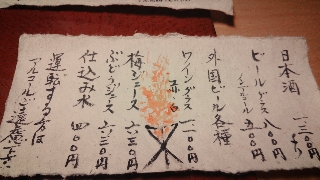 日本酒 一三〇〇円
ビールグラス 八〇〇円
ノンアルコール 五〇〇円
外国ビール各種
ワイングラス 一一〇〇円
赤 白
梅ジュース 六三〇円
ぶどうジュース 六三〇円
仕込み水 四〇〇円
運転する方は
アルコールご遠慮下さい